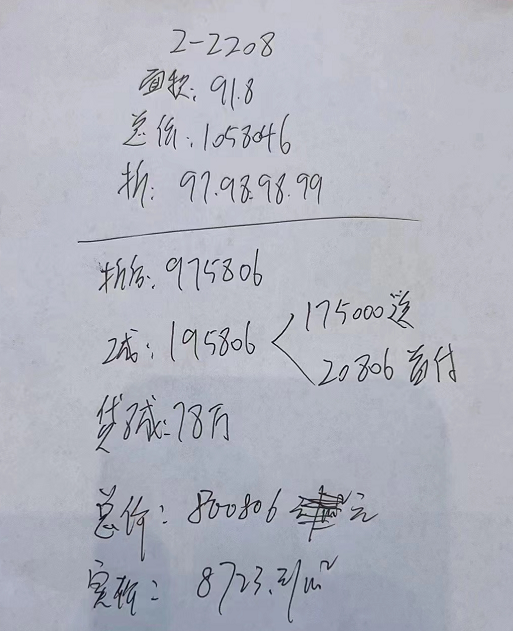 2-2208
面积: 91.8
总价: 1058046
折: 97.98.98.99
折后: 975806
2成: 195806
175000送
20806首付
贷8成: 78万
总价: 800806 元
实折: 8723.元/m²